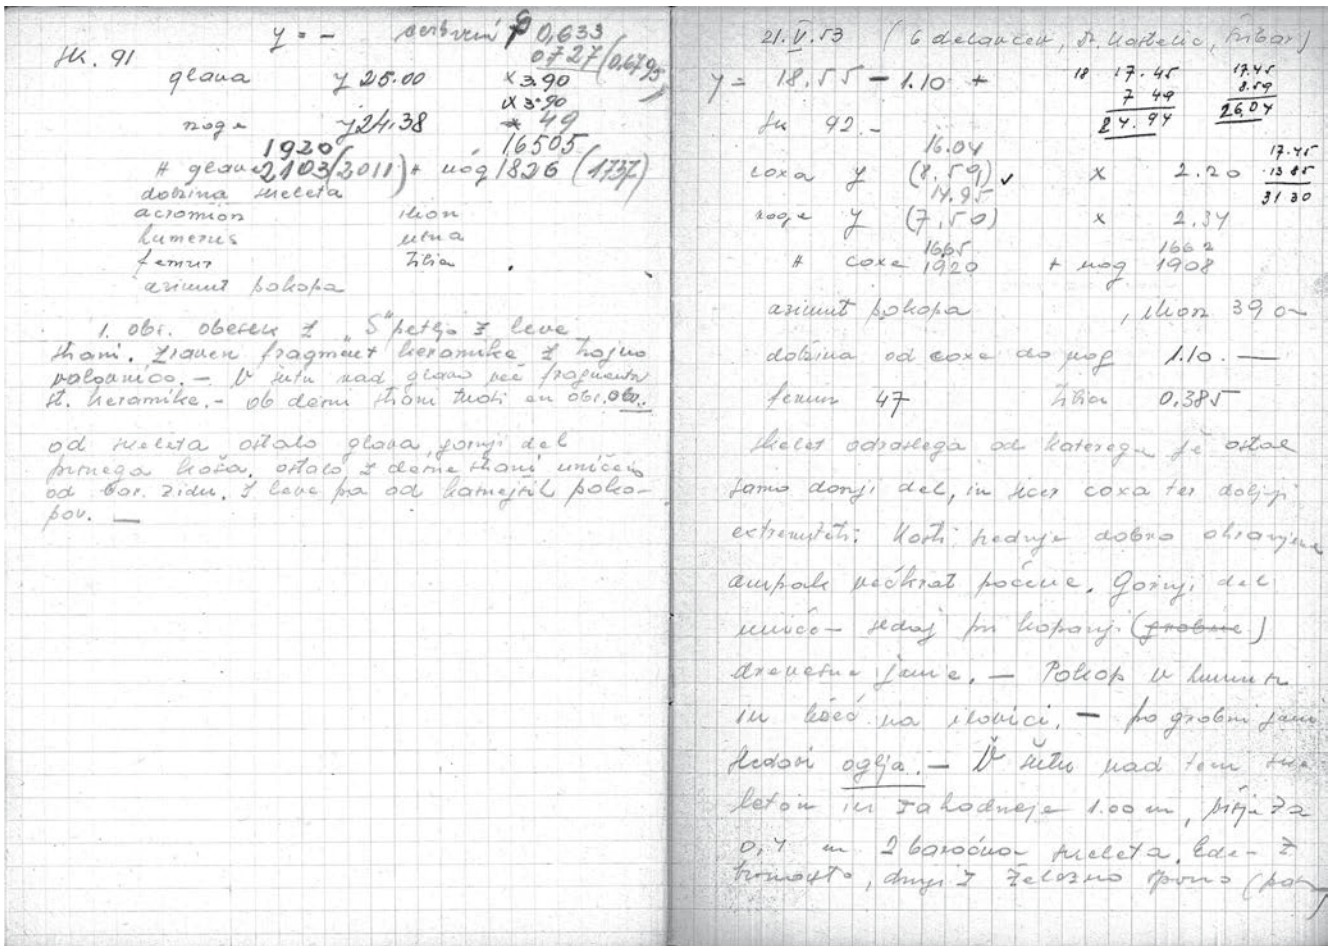 y = -
0,633
0727 (0,679,5
sk. 91
glava y 25.00 x 3.90
x 3.90
noge y 24.38 x 49
1920 16505
# glave 2103 (2011) + nóg 1826 (1737)
dolžina skeleta
acromion ilion
humerus ulna
femur tibia
azimut pokopa
1. obr. obesek z "S" petljo z leve
strani. Zraven fragment keramike z trojno
valovnico. - V šutu nad glavo več fragmentov
st. keramike. - ob desni strani tudi en obs. obr.
od skeleta ostalo glava, gornji del
prsnega koša. ostalo z desne strani uničeno
od bar. zidu. z leve pa od kasnejših poko-
pov. —
21.V.53 (6 delavcev, dr. Kastelic, Šribar)
y = 18.55 - 1.10 +
18 17.45
7 49
24.94
17.45
8.59
26.04
sk 92. -
16.04
coxa y (8.59) ✓ x 2.20
17.45
13 85
31 30
14.95
noge y (7,50) x 2.34
1665 1662
# coxe 1920 + nog 1908
azimut pokopa , ilion 39 0
dolžina od coxe do nog 1.10. —
femur 47 tibia 0.385
skelet odraslega od katerega je ostal
samo donji del, in sicer coxa ter doljnji
extremiteti. Kosti srednje dobro ohranjene
ampak večkrat počene. Gornji del
uničen sedaj pri kopanji (grobne)
drevesne jame. — Pokop v humusu
in ležeč na ilovici. — po grobni jami
sledovi oglja. — V šutu nad tem ske-
letom in zahodneje 1.00 m, višje za
0,4 m 2 baročna skeleta. Eden z
, drugi z železno spono (